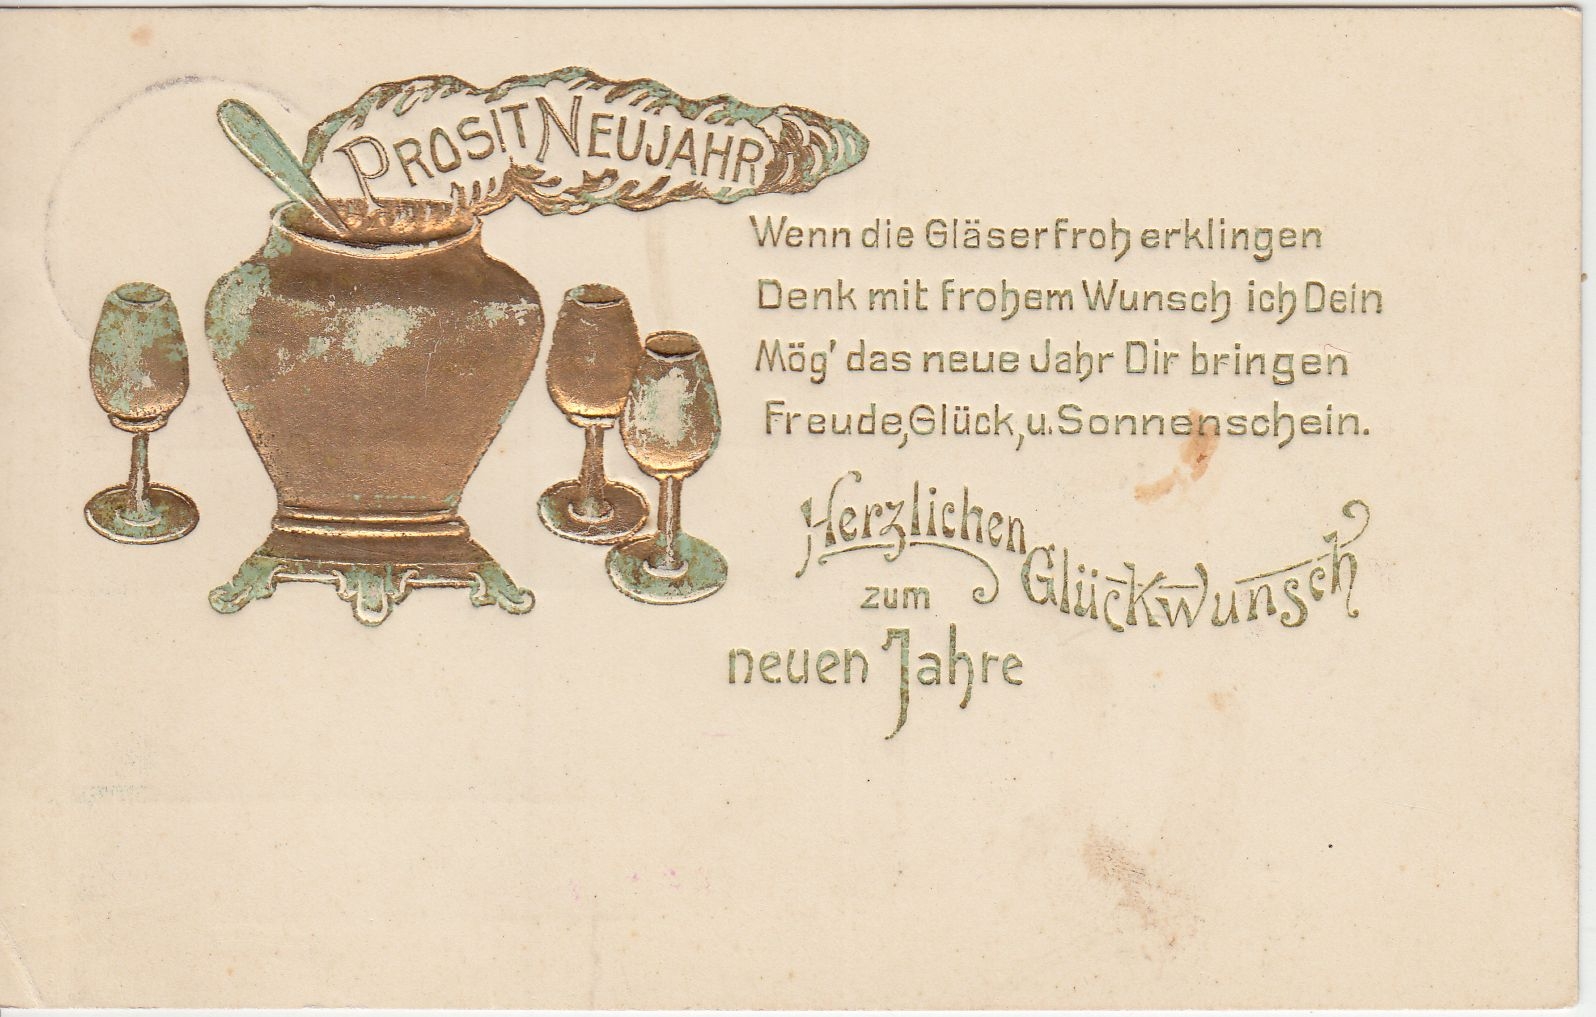 PROSIT NEUJAHR
Wenn die Gläser froh erklingen
Denk mit frohem Wunsch ich Dein
Mög' das neue Jahr Dir bringen
Freude, Glück, u. Sonnenschein.
Herzlichen
Glückwunsch
zum
neuen Jahre